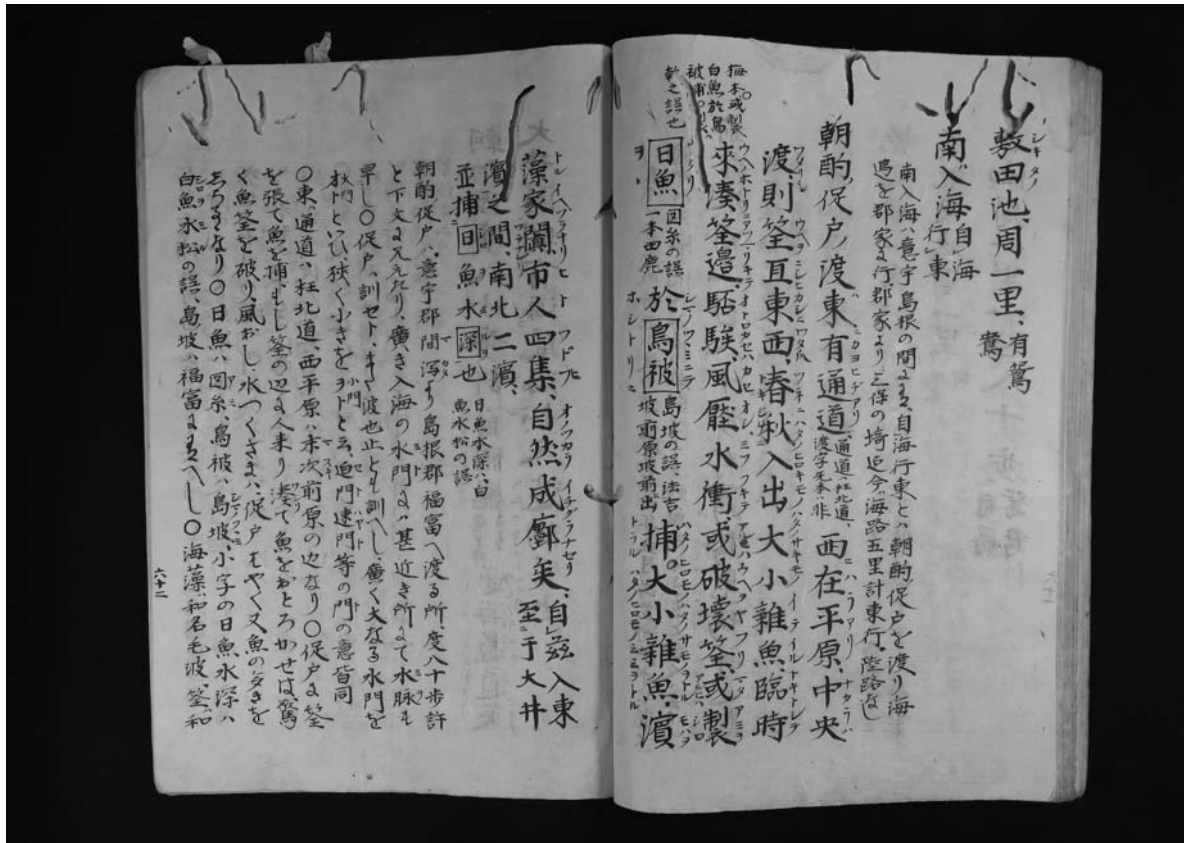 敷田池、周一里、有鴛鴦
南、入海自海行東
南入海ハ意宇島根の間よ、自海行東とハ朝酌促戸を渡り海
邊を郡家よ行、郡家より三保の埼迄今海路五里計東行、陸路なし
朝酌促戸渡東有通道通道ハ枉北道、渡字元本ニ非西在平原、中央
渡、則筌亙東西、春秋入出大小雜魚、臨時
來湊筌邉、駈駭、風壓水衝、或破壊筌、或製
日魚日魚ハ囙糸の誤一本田鹿於鳥被島坡の誤、法吉坡前原坡前出捕、大小雜魚、濱
梅本或製
白魚於鳥
被捕
軟之誤也
藻家闐、市人四集、自然成鄽矣、自茲入東至于大井
濱之間、南北二濱、
並捕日魚水深也日魚水深ハ、白魚水松の誤
朝酌促戸、意宇郡間潟より島根郡福富へ渡る所、度八十歩許
と下文よ見えたり、廣き入海の水門よハ甚近き所よて水脉も
早し〇促戸、訓セト、また波也止とも訓へし、廣く大なる水門を
水門といひ、狭く小きを小門と云、迫門速門等の門の意皆同
〇東通道ハ枉北道、西平原ハ末次前原の辺なり〇促戸よ筌
を張て魚を捕、むし筌の辺よ人来り湊て魚をおとろかせは、驚
く魚筌を破り、風おし、水つくさまハ、促戸もやく又魚の多きを
いふなり〇日魚ハ囙糸、鳥被ハ島坡、小字の日魚水深ハ
白魚水松の誤、島坡ハ福富よあへし〇海藻、和名毛波、筌、和
六十二